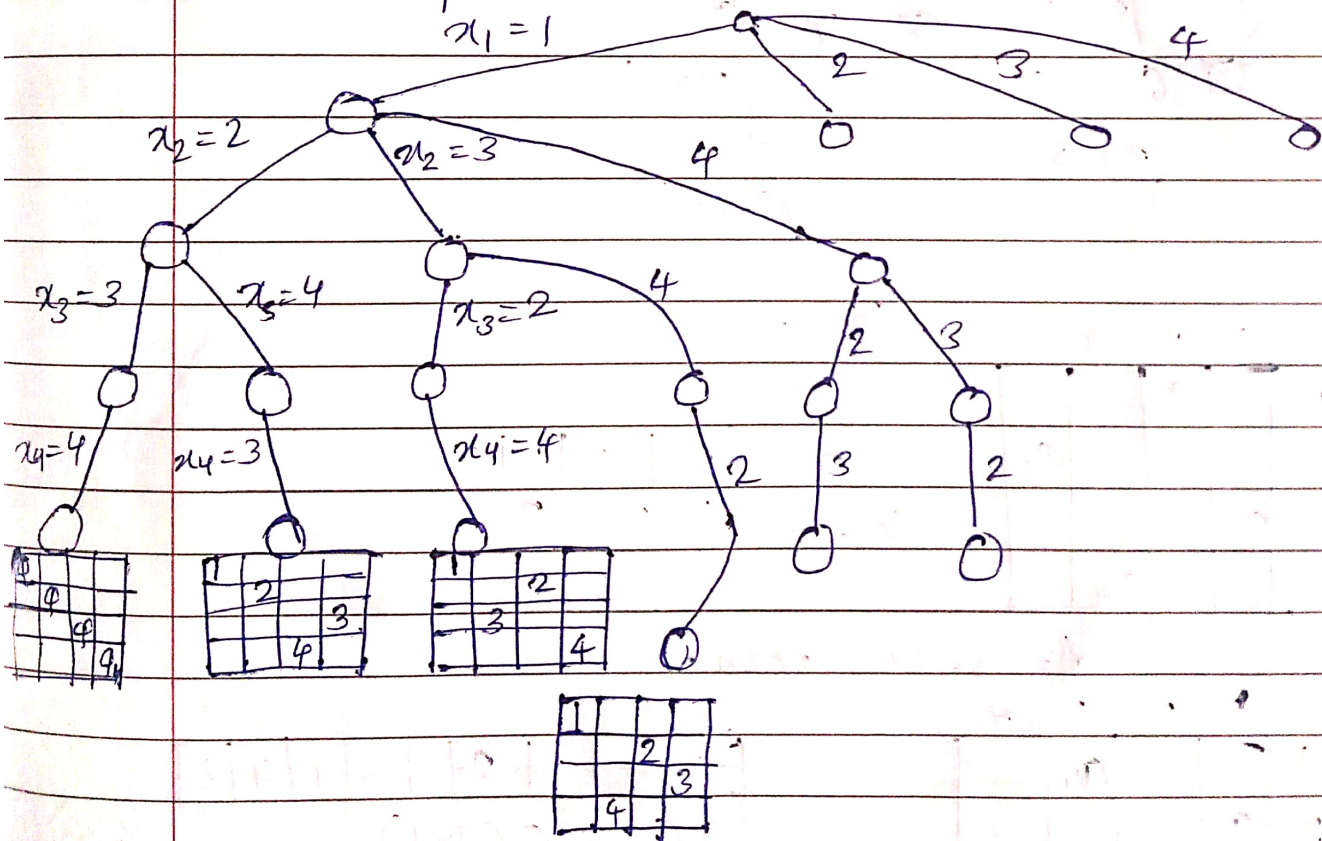 x₁ = 1
2
3
4
x₂ = 2
x₂ = 3
4
x₃ = 3
x₃ = 4
x₃ = 2
4
2
3
x₄ = 4
x₄ = 3
x₄ = 4
2
3
2
1
2
3
4
1
2
3
4
1
2
3
4